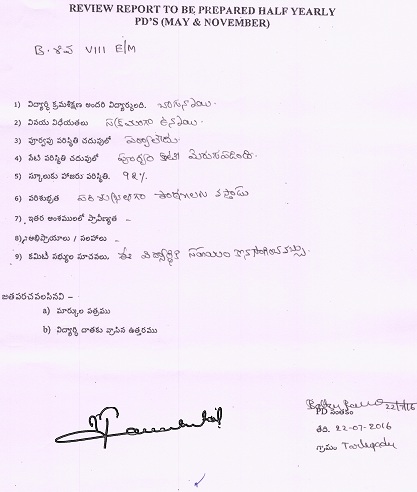 REVIEW REPORT TO BE PREPARED HALF YEARLY
PD'S (MAY & NOVEMBER)
B. శివ VIII E/M
1) విద్యార్థి క్రమశిక్షణ అందరి విద్యార్థులది. బాగున్నాయి.
2) వినయ విధేయతలు సక్రమంగా ఉన్నాయి.
3) పూర్వపు పరిస్థితి చదువులో
4) నేటి పరిస్థితి చదువులో పూర్వం కంటే మెరుగుపడింది.
5) స్కూలుకు హాజరు పరిస్థితి. 92%.
6) పరిశుభ్రత పరిశుభ్రంగా వస్తాడు
7) ఇతర అంశములలో ప్రావీణ్యత -
8) అభిప్రాయాలు / సలహాలు -
9) కమిటీ సభ్యుల సూచనలు. ఈ విద్యార్థికి సహాయం కొనసాగించవచ్చు.
జతపరచవలసినవి –
a) మార్కుల పత్రము
b) విద్యార్థి దాతకు వ్రాసిన ఉత్తరము
22/7/16
PD సంతకం
తేది. 22-07-2016
గ్రామం